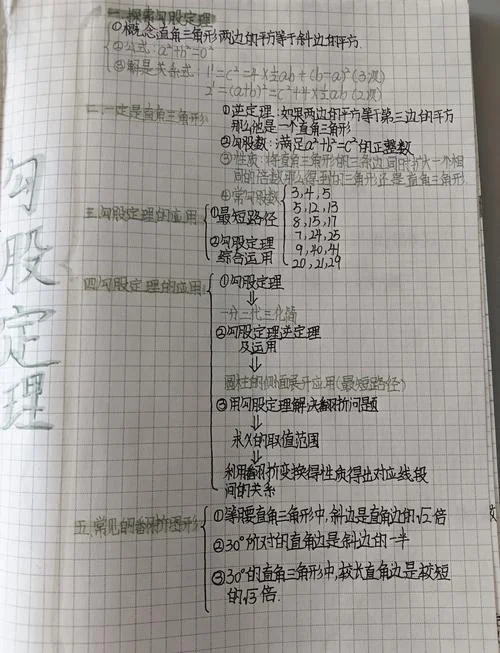 勾股定理
一 探索勾股定理
①概念直角三角形两边的平方等于斜边的平方.
②公式:a²+b²=c²
③解是关系式:1'=c²=4×½ab+(b-a)²(3次)
2'=(a+b)²=c²+4×½ab(2次)
二.一定是直角三角形
①逆定理:如果两边的平方等于第三边的平方
那么他是一个直角三角形
②勾股数:满足a²+b²=c²的正整数
③性质:将直角三角形的三条边同时扩大一个相
同的倍数那么得到的三角形还是直角三角形.
④常勾股数
3,4,5
5,12,13
8,15,17
7,24,25
9,40,41
20,21,29
三.勾股定理的应用
①最短路径
②勾股定理
综合运用
四勾股定理的应用:
①勾股定理
⇓
一分三代三化简
②勾股定理逆定理
及运用
⇓
圆柱的侧面展开应用(最短路径)
③用勾股定理解决翻折问题
⇓
求人的取值范围
⇓
利用翻折变换得性质得出对应线段
间的关系
五.常见的翻折图形
①等腰直角三角形中,斜边是直角边的√2倍
②30°所对的直角边是斜边的一半
③30°的直角三角形中,较长直角边是较短
的√3倍.